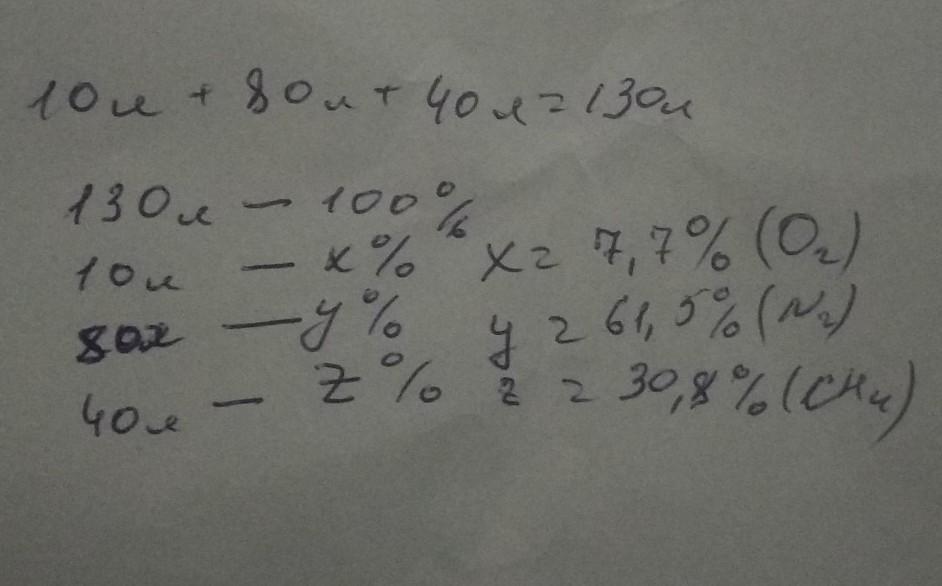 10л + 80л + 40л = 130л
130л — 100%
10л — x% x = 7,7% (O₂)
80л — y% y = 61,5% (N₂)
40л — z% z = 30,8% (CH₄)